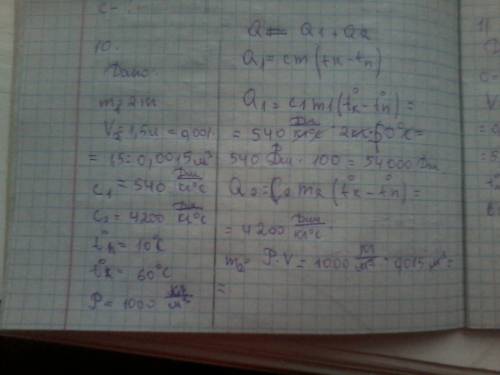 10.
Дано:
m₁ 2кг
V = 1,5л = 0,001·
= 1,5 = 0,0015 м³
c₁ = 540 Дж/кг°C
c₂ = 4200 Дж/кг°C
t°н = 10°C
t°к = 60°C
P = 1000 кг/м³
Q = Q1 + Q2
Q₁ = cm (tк - tп)
Q₁ = c₁ m₁ (t°к - t°п) =
= 540 Дж/кг°C · 2кг · 50°C =
540 Дж · 100 = 54000 Дж
Q₂ = C₂ m₂ (t°к - t°п) =
= 4200 Дж/кг°C ·
m₂ = P · V = 1000 кг/м³ · 0,0015 м³ =
=